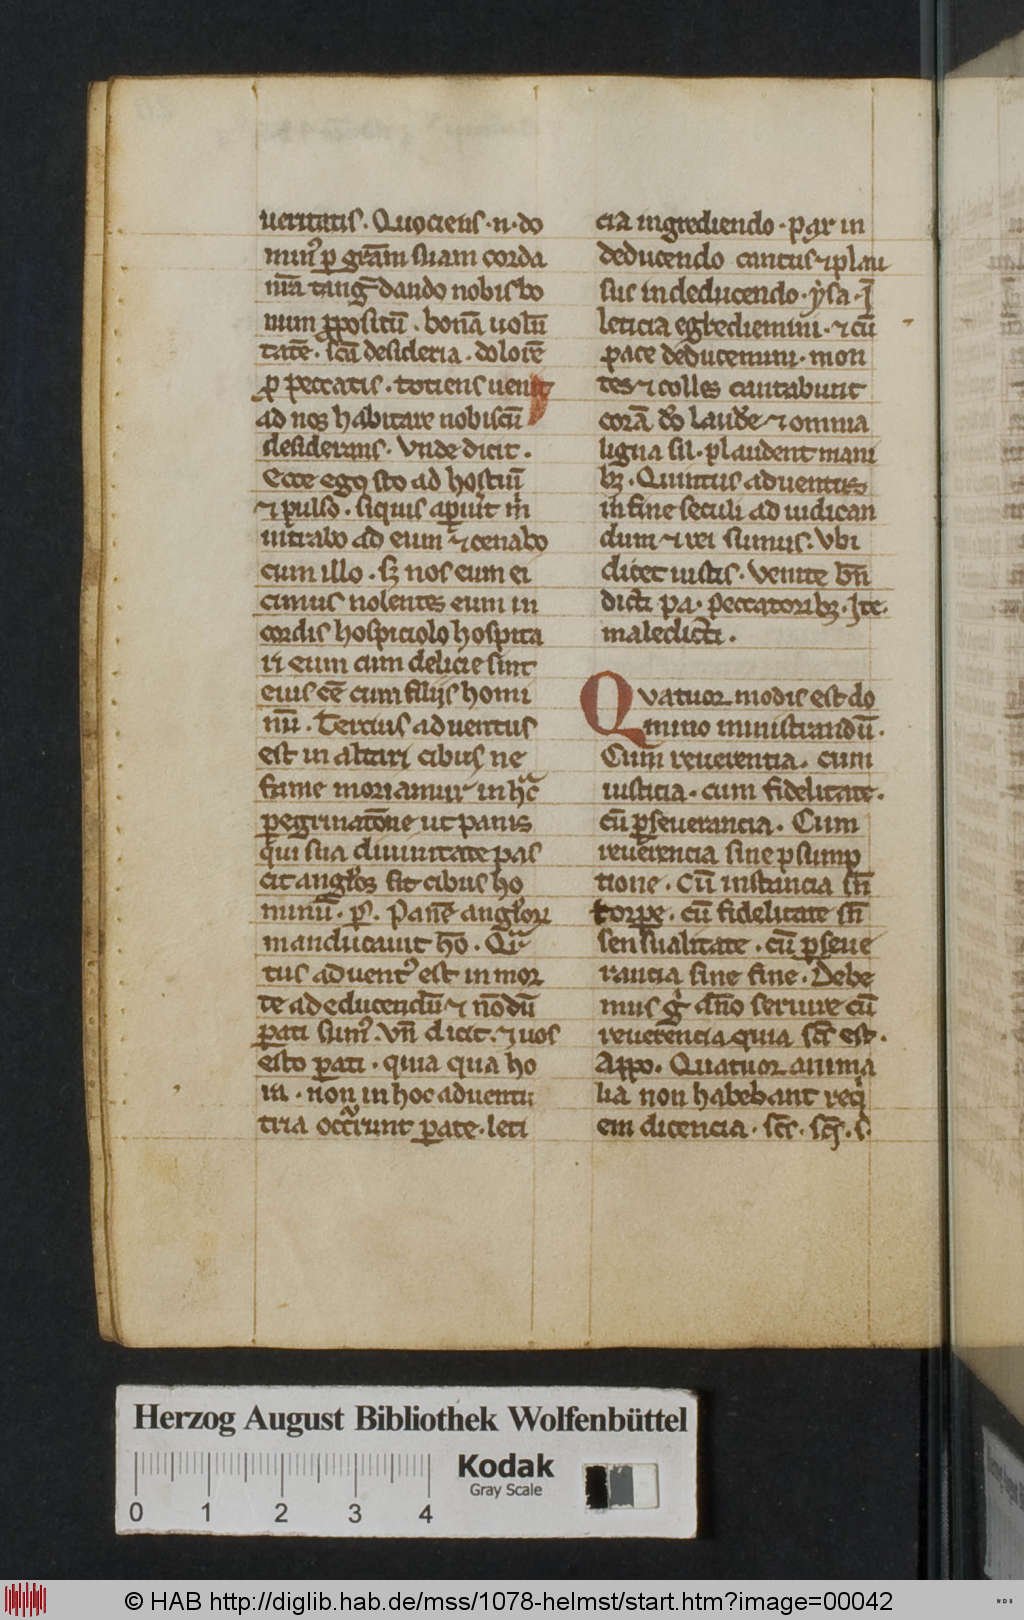 ueritatis. Quociens .n. do
min᾽ ꝑ gr̄am suam corda
nr̄a tang̅ dando nobis bo
num ꝓpositū. bonā uolū
tatē. sc̄a desideria. dolorē
ꝓ peccatis. totiens uenit
ad nos habitare nobiscū
desiderans. Vnde dicit.
Ecce ego sto ad hostiū
⁊ pulso. siquis aꝑuit m
intrabo ad eum ⁊ cenabo
cum illo. sꝫ nos eum ei
cimus nolentes eum in
cordis hospiciolo hospita
ri eum cum delicie sint
eius eē cum filijs homi
nū. Tercius aduentus
est in altari cibus ne
fame moriamur in hͣc
ꝑegrinatōne ut panis
qui sua diuinitate pas
cit angl̓oꝝ fit cibus ho
minū. ps̄. Panē angl̓oꝝ
manducauit hō. Qͣr
tus aduent᾽ est in mor
te ad educendū ⁊ nōdū
ꝑati sum᾽. Vn̄ dicit. ⁊ uos
esto ꝑati. quia qua ho
ra. non in hoc aduentu
tria occͬrunt ꝑate. leti
cia ingrediendo. pax in
deducendo cantus ⁊ plau
sus in deducendo. ysa. J̄
leticia egrediemini. ⁊ cū
pace deducemini. mon
tes ⁊ colles cantabunt
corā d̄o laude ⁊ omnia
ligna sil. plaudent mani
bꝫ. Quintus aduentus
in fine seculi ad iudican
dum ⁊ rei sumus. Vbi
dicet iustis. Venite bn̄
dicti pa. peccatoribꝫ. Ite.
maledicti.
Quatuor modis est do
mino ministrandū.
Cum reuerentia. cum
iusticia. cum fidelitate.
cū ꝑseuerancia. Cum
reuerencia sine p̄sump
tione. Cū instancia sn̄
torpe. cū fidelitate sn̄
sensualitate. cū ꝑseue
rancia sine fine. Debe
mus gͥ dn̄o seruire cū
reuerencia quia sc̄s est.
Appo. Quatuor anima
lia non habebant req̇
em dicencia. sc̄s. sc̄s. s̄.
Herzog August Bibliothek Wolfenbüttel
0 1 2 3 4
Kodak
Gray Scale
© HAB http://diglib.hab.de/mss/1078-helmst/start.htm?image=00042